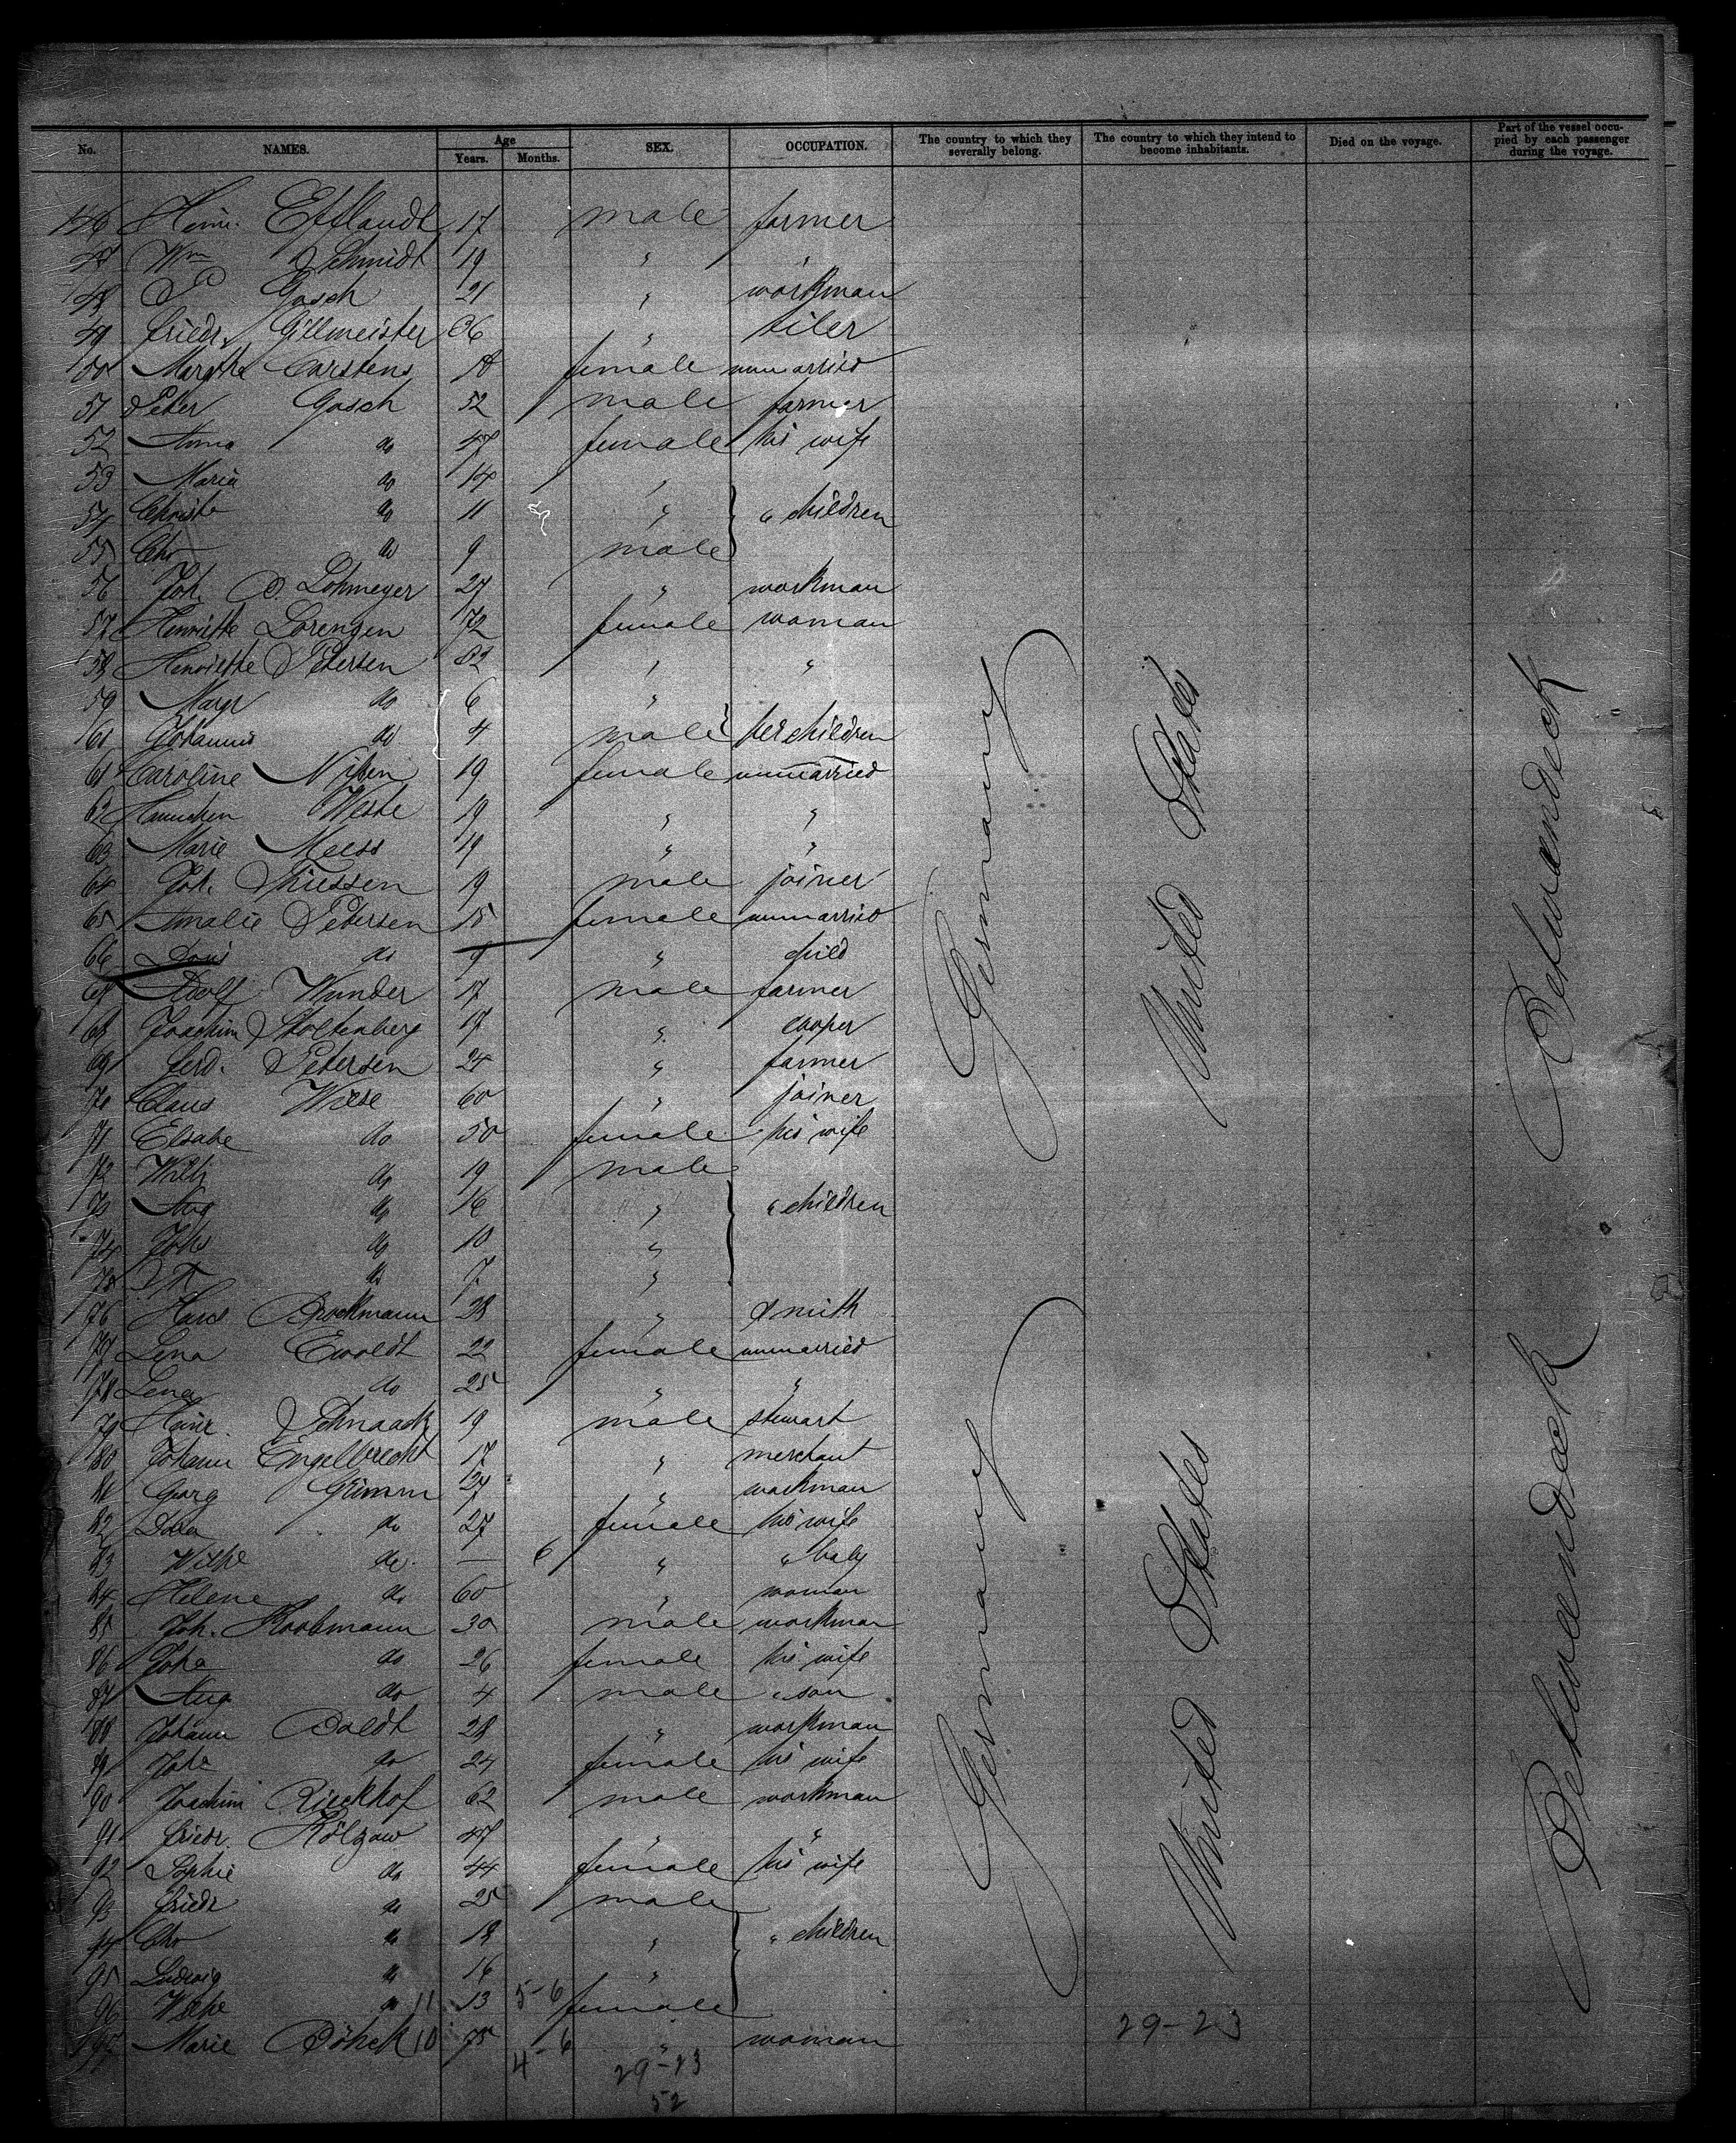 No. NAMES. Age Years. Months. SEX. OCCUPATION. The country to which they severally belong. The country to which they intend to become inhabitants. Died on the voyage. Part of the vessel occupied by each passenger during the voyage.
Efflandt 17 male farmer
Wm Schmidt 19 "
48 P Gosch 21 " workman
49 Friedr. Gillmeister 36 " tiler
50 Carstens female unmarried
51 Peter Gosch 52 male farmer
52 Anna do 47 female his wife
53 Maria do 14 "
54 Christe do 11 " " children
55 Chr do 9 male
56 Joh. Lohmeyer 27 " workman
57 Henriette Lorenzen 72 female woman
58 Henriette Petersen 32 " "
59 Margr do 6 "
Johannes do 4 male her children
61 Caroline Nissen 19 female unmarried
62 Hannchen Weste 19 " "
63 Marie Mees 19 " "
64 Joh. Thiessen 19 male joiner
65 Amalie Petersen 15 female unmarried
66 do 9 " child
67 Adolf Wunder 17 male farmer
68 Joachim Stoltenberg 17 " cooper
69 Ferd. Petersen 24 " farmer
70 Claus Wiese 60 " joiner
71 Elsabe do 50 female his wife
72 do 19 male
73 Aug do 16 " " children
74 Johs do 10 "
75 do 7 "
76 Hans Brockmann 28 " Smith
77 Lena Ewoldt 22 female unmarried
78 Lena do 25 " "
79 Heinr. Schnaack 19 male stewart
80 Johann Engelbrecht 17 " merchant
81 Georg Grimm 27 " workman
82 Dora do 27 female his wife
83 Wilhe do. — 6 " " baby
84 Helene do 60 " woman
85 Joh. Koobmann 30 male workman
86 Joha do 26 female his wife
87 Aug do 4 male " son
88 Johann Boldt 28 " workman
89 Joha do 24 female his wife
90 Joachim Rieckhof 62 male workman
91 Friedr. Kölzow 47 " "
92 Sophie do 44 female his wife
93 Friedr do 25 male
94 Chr do 18 " " children
95 Ludwig do 16 "
96 Wilhe do 11 13 5-6 female
Marie Böhck 10 75 4-6 " woman
29-23
52
29-23
Germany
United States
Betweendeck
Germany
United States
Betweendeck